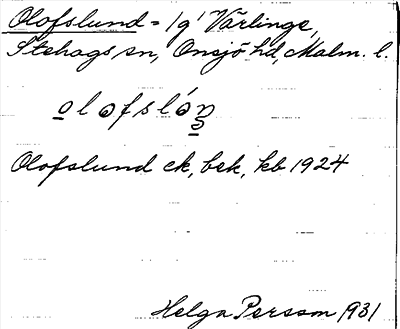 Olofslund = 1g1 Värlinge,
Stehags sn, Onsjö hd, Malm. l.
Olofslund ek, bsk, kb 1924
Helga Persson 1931